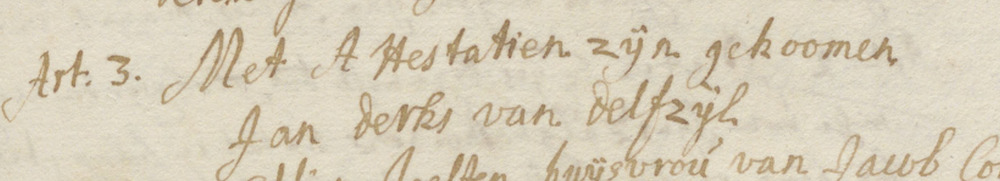 Art. 3. Met Attestatien zÿn gekoomen
Jan derks van delfzÿl
huÿsvrou van Jacob